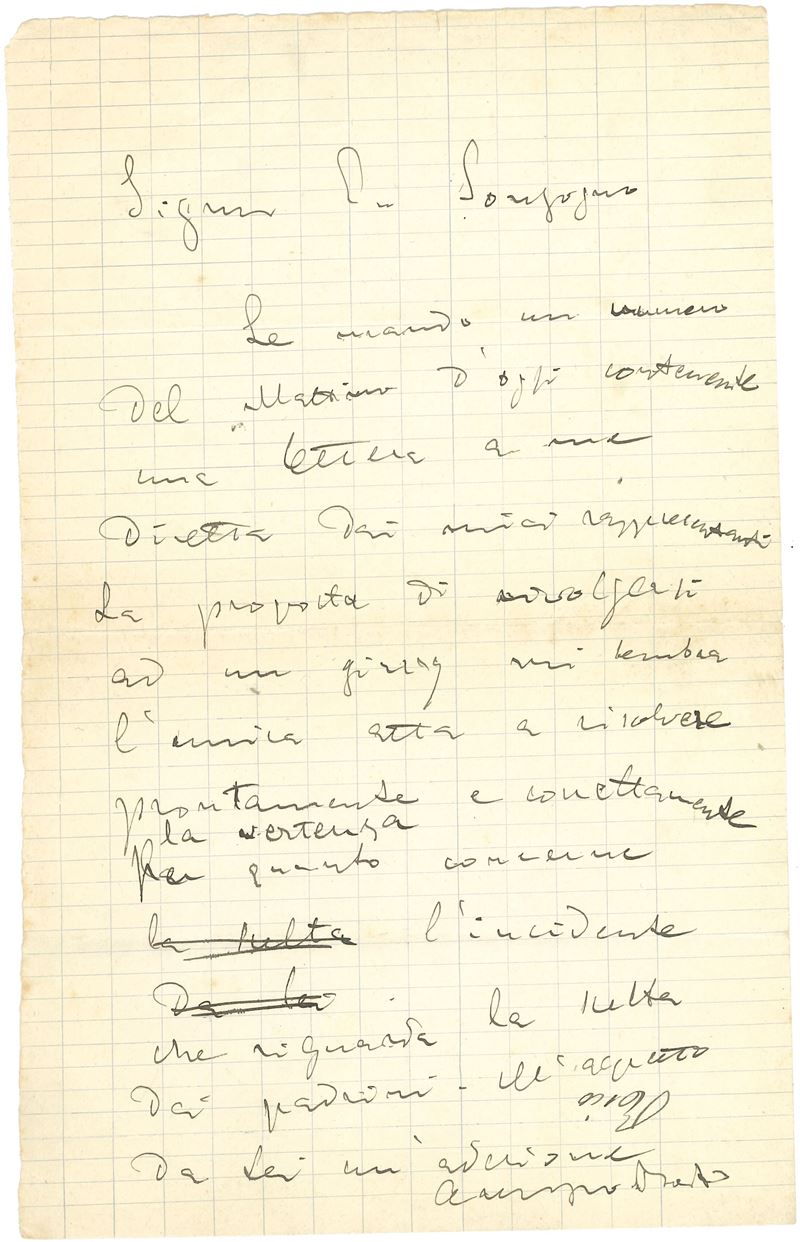 Signor Sonzogno
Le mando un numero
Del Mattino d'oggi contenente
una lettera a me
Diretta Dai miei rappresentanti
La proposta di rivolgersi
ad un giury mi sembra
l'unica atta a risolvere
prontamente e correttamente
la vertenza
Per quanto concerne
la scelta l'incidente
Da lei
che riguarda la scelta
Dai padrini - M'aspetto
Da Lei un'adesione